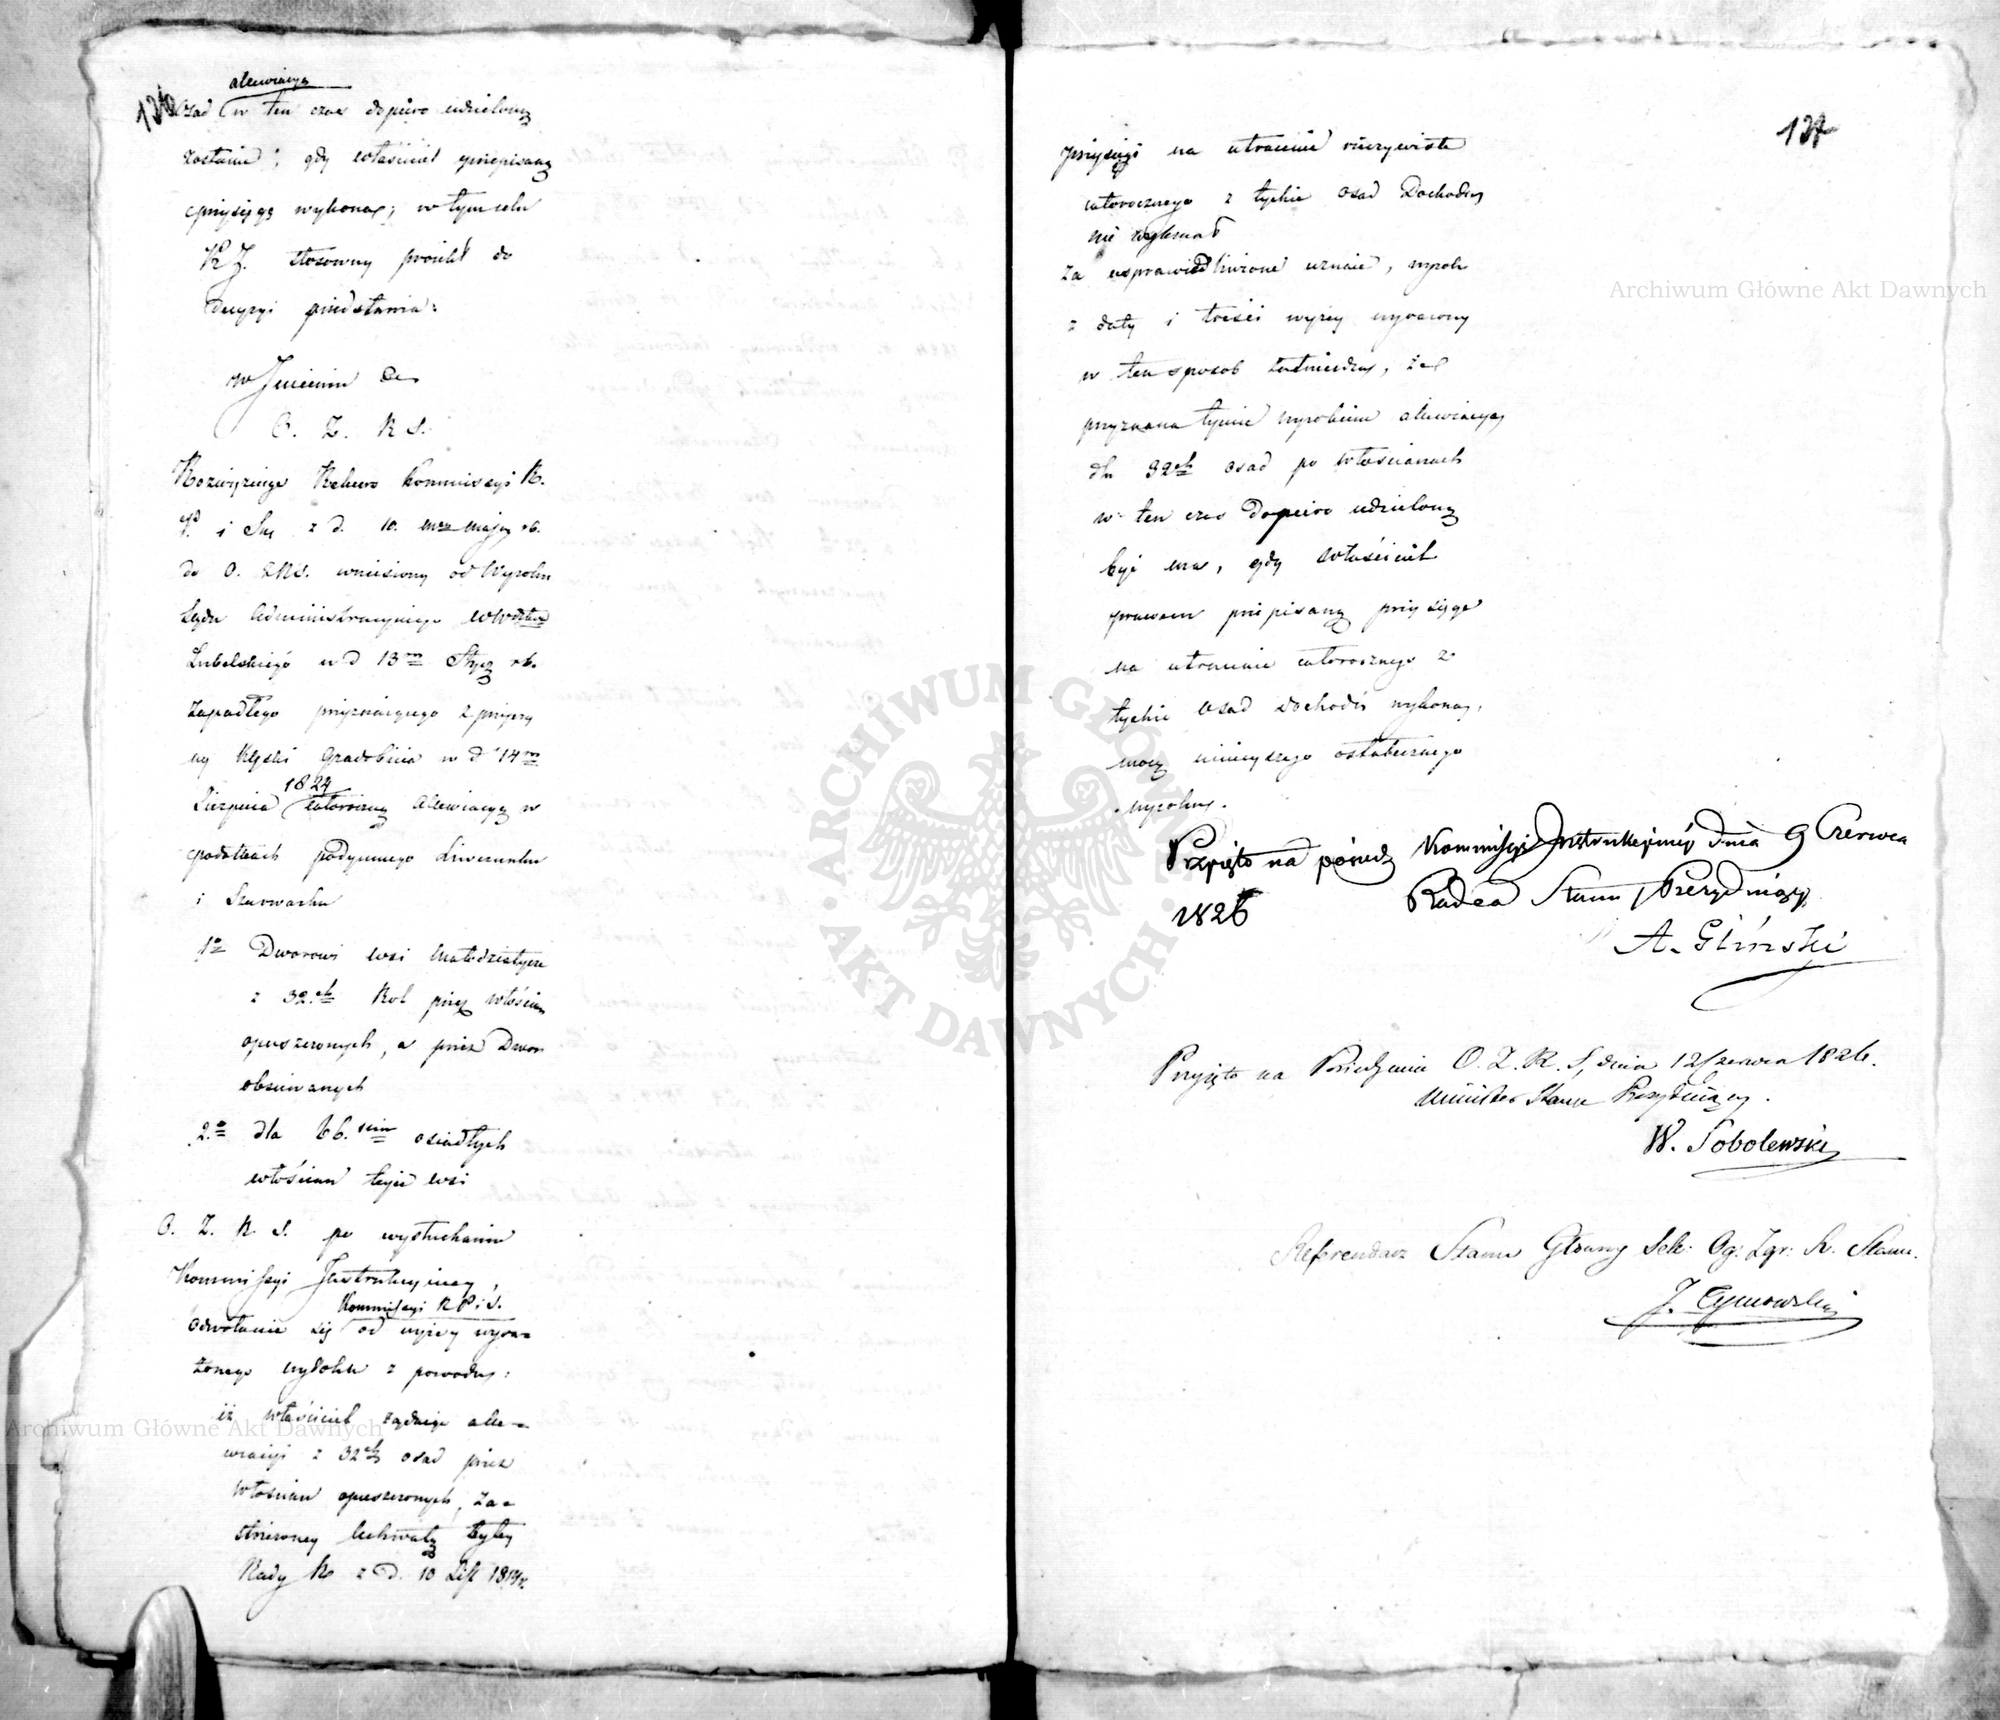 136
alewiacya
sad w ten czas dopiero udzieloną
zostanie; gdy właściciel przepisaną
przysięgę wykona; w tym celu
K J. stosowny proiekt do
decyzyi przedstawia:
w Imieniu &c
O. Z. R S.
Rozwiązuiąc Rekurs Kommissyi R.
P. i Sk. z d. 10. maja rb.
do O. ZRS. wniesiony od Wyroku
Sądu Administracyinego Wwdztwa
Lubelskiego w d 13m Stycz rb.
zapadłego przyznaiącego z przyczy
ny klęski Gradobicia w d 14m
1824
Sierpnia całoroczną alewiacyą w
podatkach podymnego Liwerunku
i Szarwarku
1o Dworowi wsi
z 32.ch Rol przez włościan
opuszczonych, a przez Dwor
obsiewanych
2.o dla 66.ciu osiadłych
włościan teyże wsi
O. Z. R S. po wysłuchaniu
Kommissyi Instrukcyiney,
Kommissyi R P i S.
odwołanie się od wyżey wyra=
żonego wyroku z powodu:
iż właściciel żądaiąc ale=
wiacyi z 32ch osad przez
włościan opuszczonych, za=
strzeżoney Uchwałą byłey
Rady z d. 10 List 1814r.
137
przysięgi na utracenie rzeczywiste
całorocznego z tychże osad Dochodu
nie wykonał
za usprawiedliwione uznaie, wyrok
z daty i treści wyżey wyrażony
w ten sposób zatwierdza, że
przyznana tymże wyrokiem alewiacya
dla 32ch osad po włościanach
w ten czas dopiero udzieloną
być ma, gdy właściciel
prawem przepisaną przysięgę
na utracenie całorocznego z
tychże osad dochodu wykona,
mocą ninieyszego ostatecznego
wyroku.
Przyięto na posiedz Kommissyi Instrukcyiney dnia 9 Czerwca
1826 Radca Stanu Prezyduiący
A. Gliński
Przyięto na Posiedzeniu O. Z. R. S, dnia 12 Czerwca 1826.
Minister Stanu Prezyduiący.
W. Sobolewski
Referendarz Stanu Główny Sek: Og: Zgr: R. Stanu.
J. Tymowski
Archiwum Główne Akt Dawnych
Archiwum Główne Akt Dawnych
ARCHIWUM GŁÓWNE AKT DAWNYCH